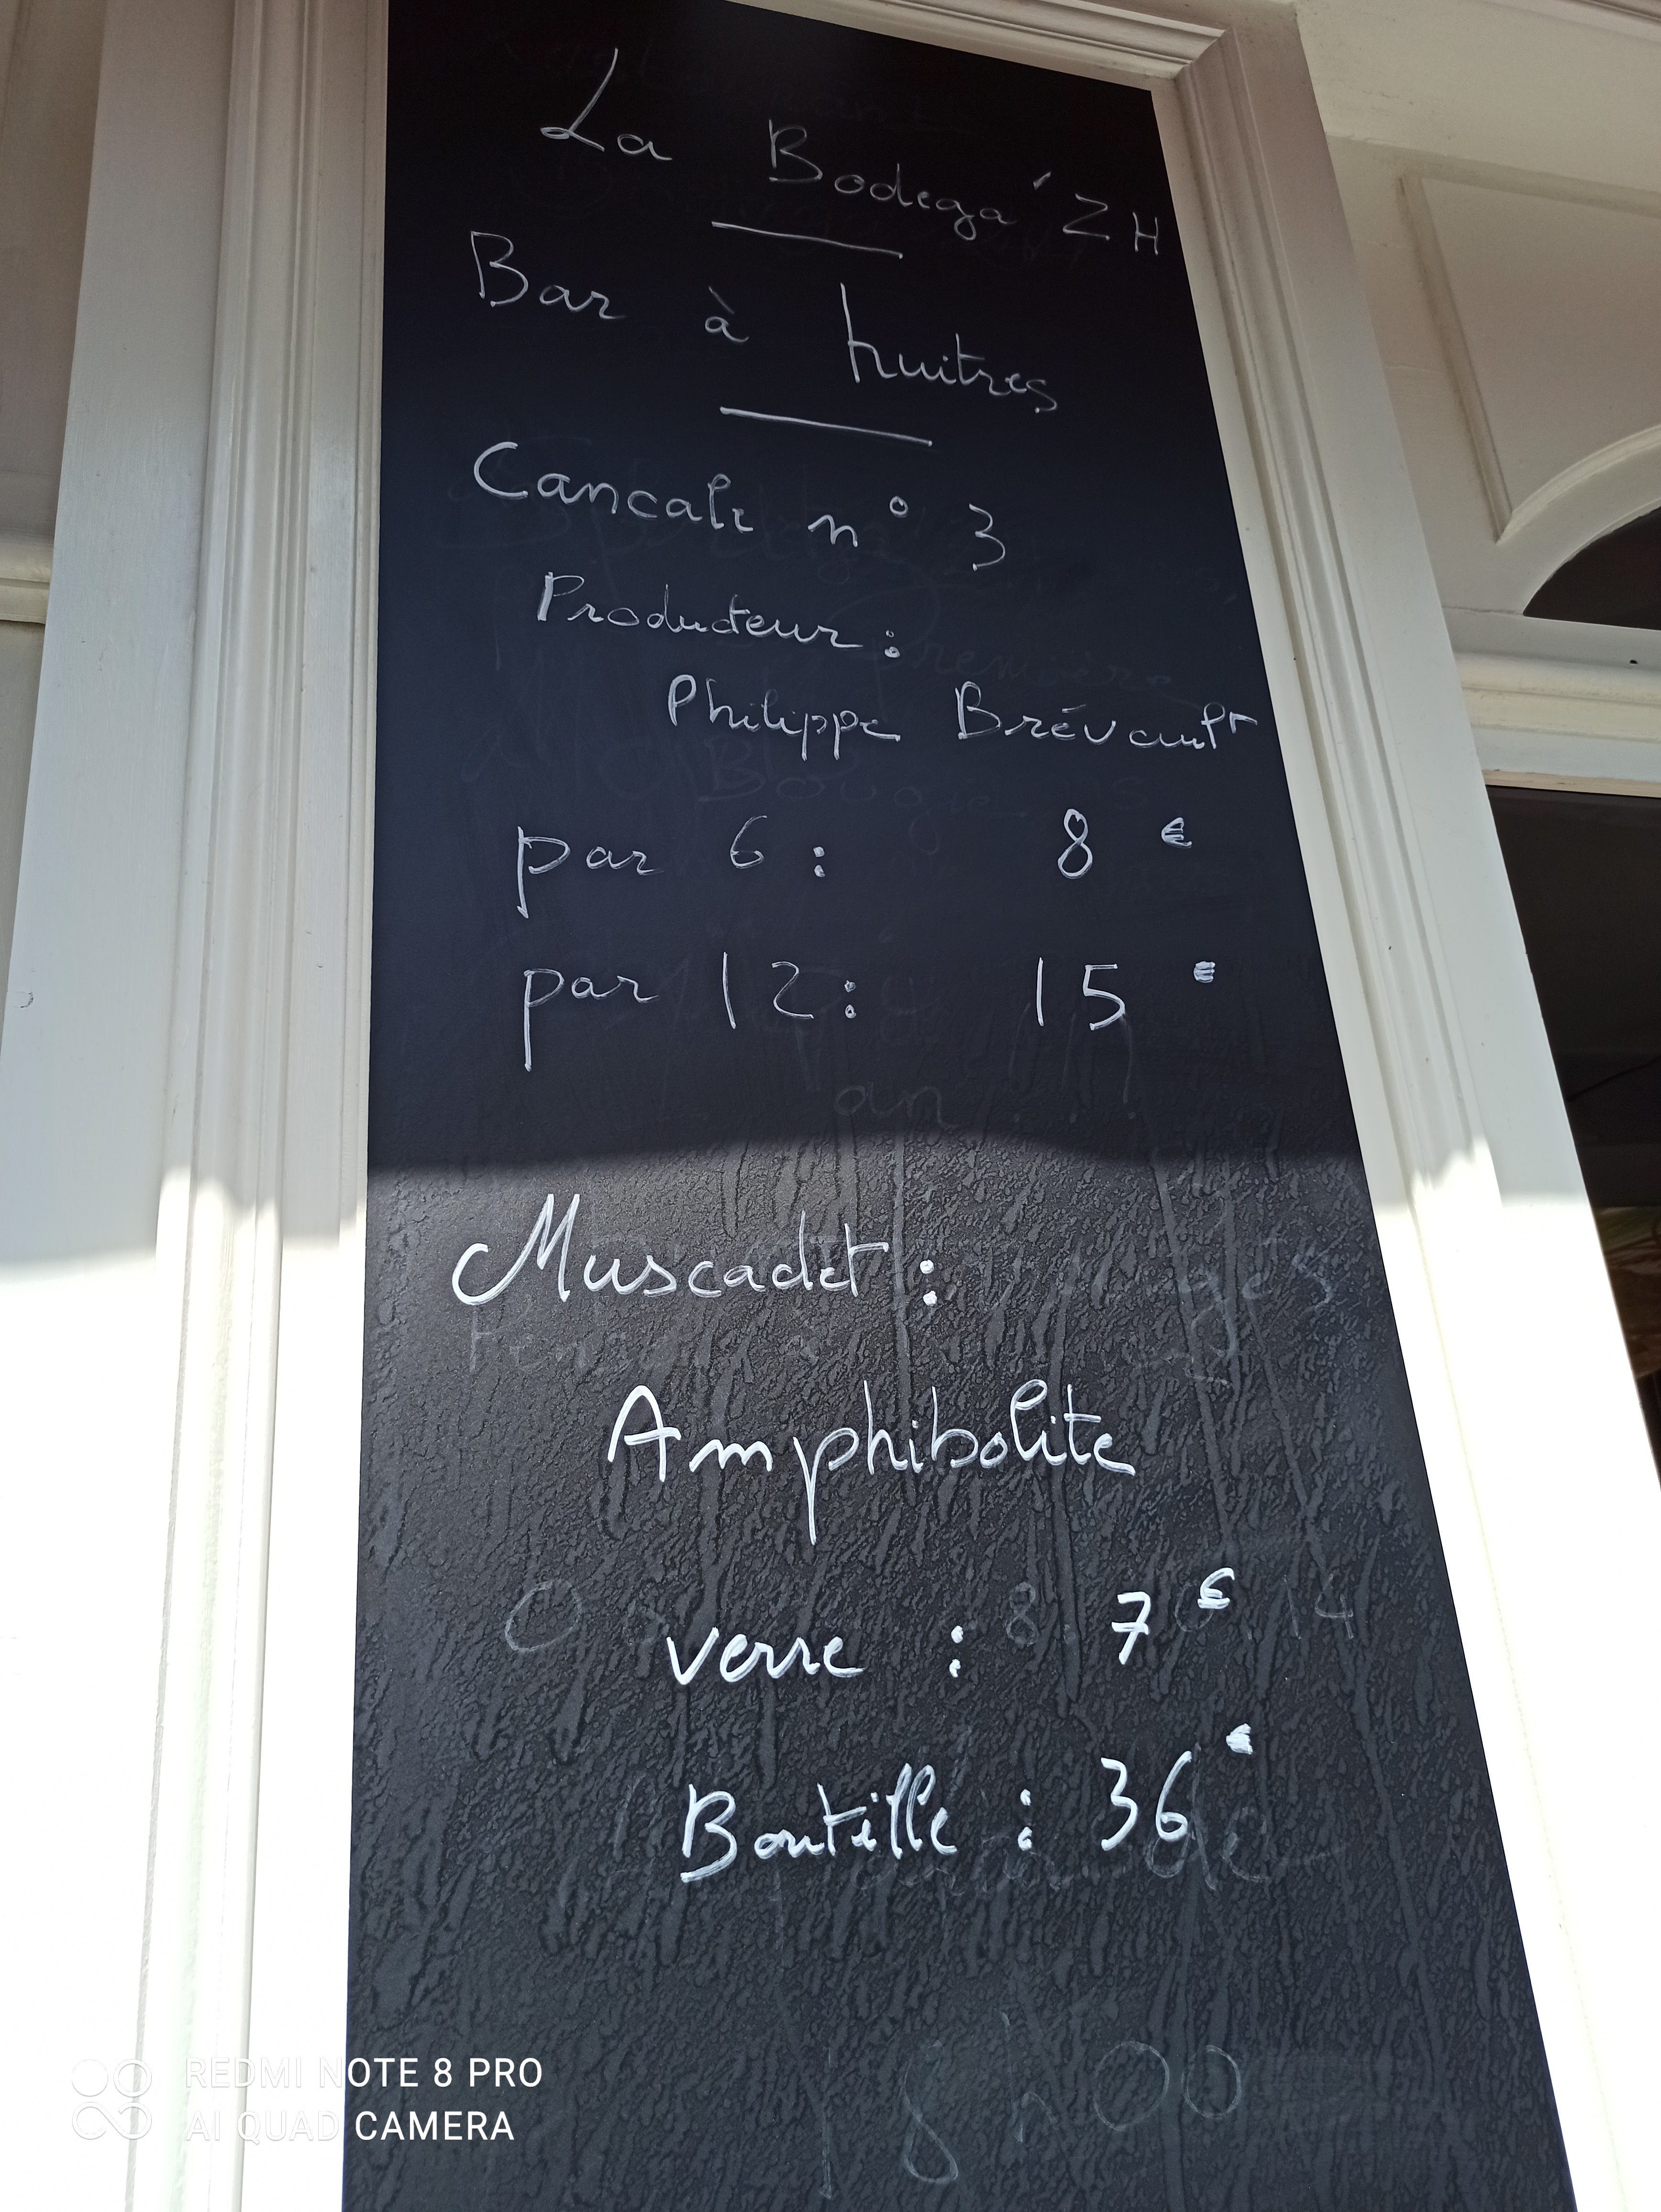 La Bodega'ZH
Bar à huitres
Cancale n° 3
Producteur :
Philippe Brévault
par 6 : 8 €
par 12 : 15 €
an
Muscadet :
Amphibolite
verre : 7 €
Bouteille : 36 €
18h00
REDMI NOTE 8 PRO
AI QUAD CAMERA